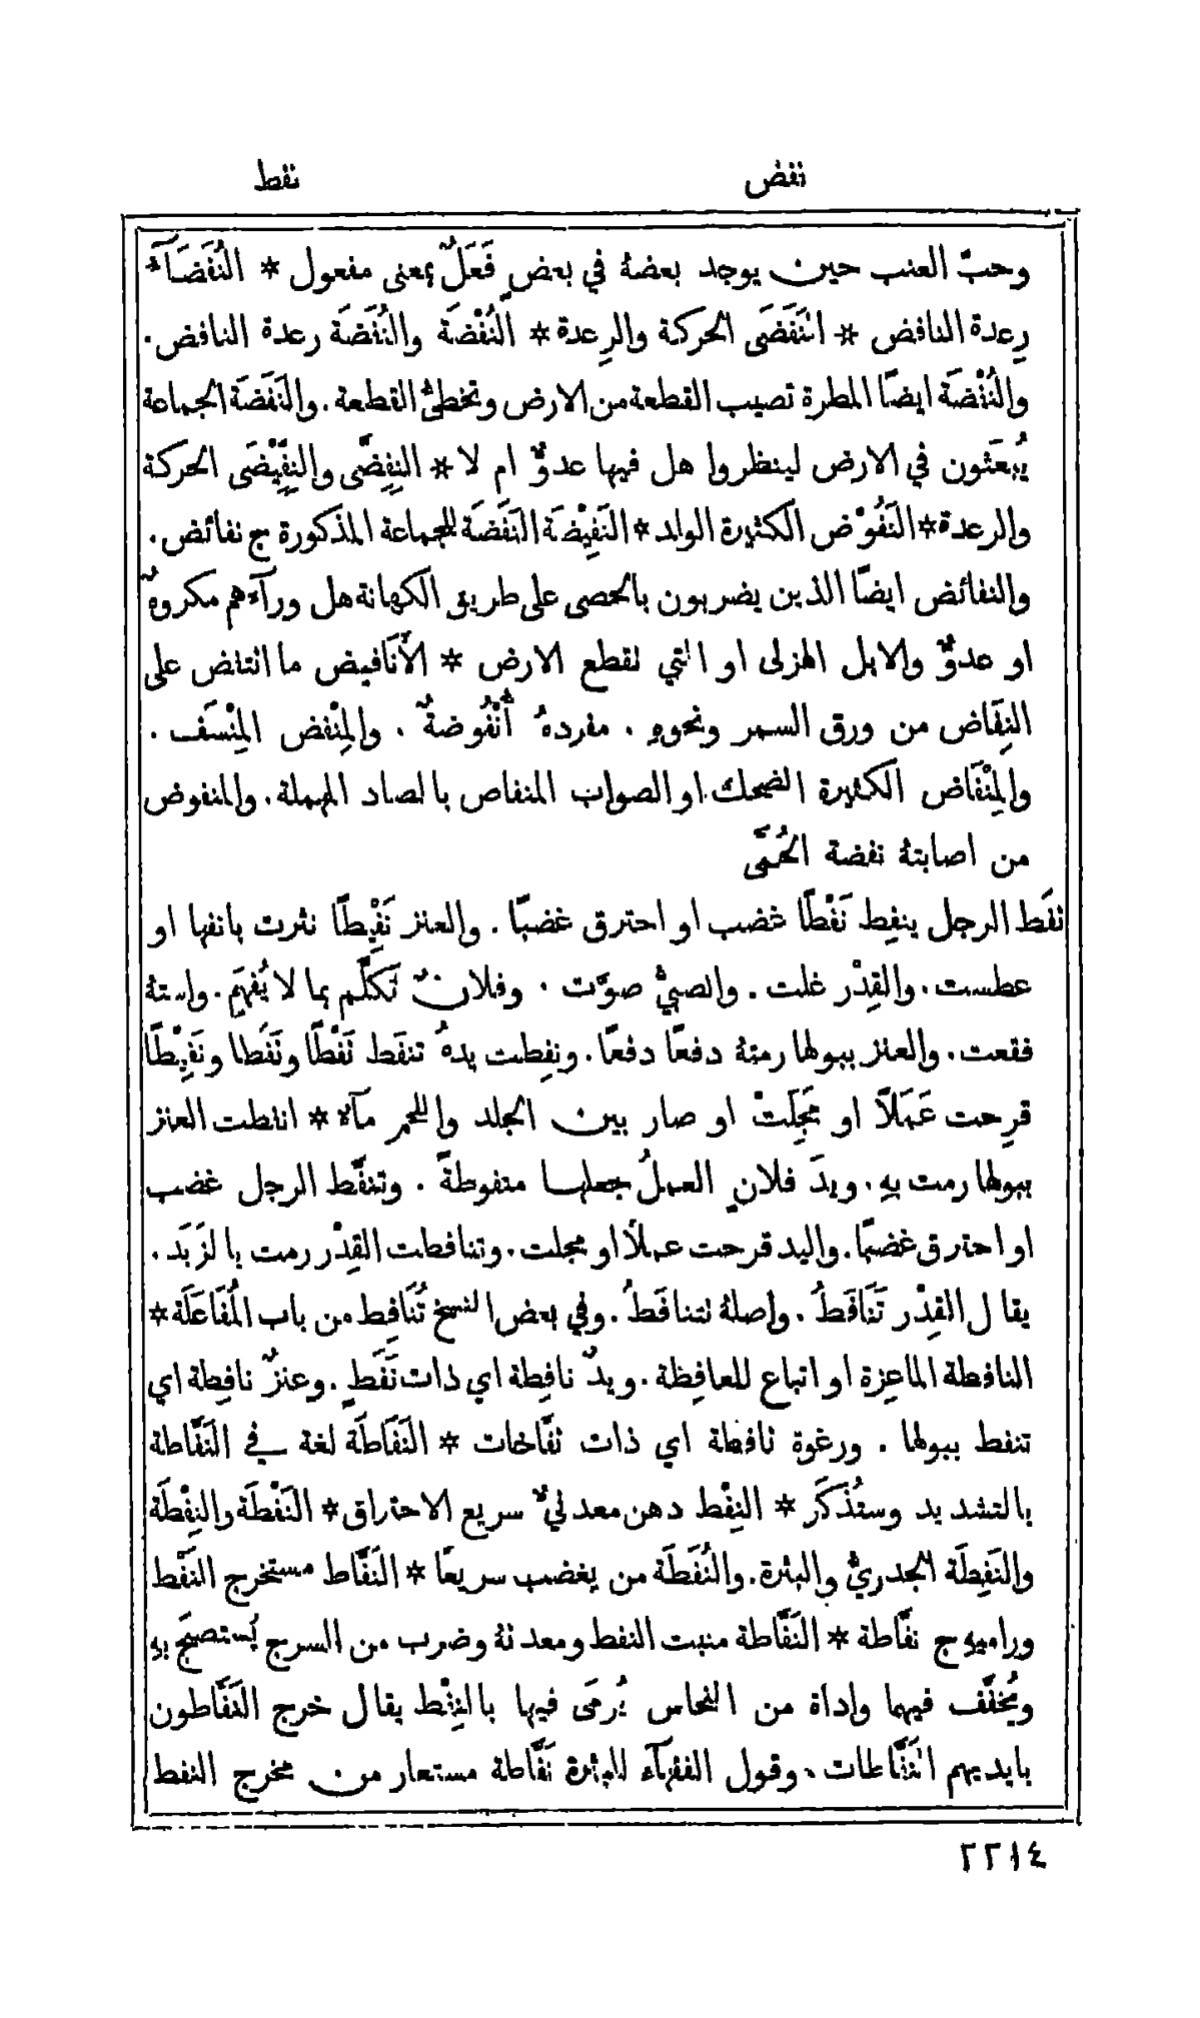 نفض
نفط
وحبّ العنب حين يوجد بعضهُ في بعضٍ فَعَلٌ بمعنى مفعول * النُّفَضَآءُ
رِعدة النافض * انتَفَضَى الحركة والرِعدة * النُّفْضَة والنُّفَضَة رعدة النافض.
والنُّفْضَة ايضًا المطرة تصيب القطعة من الارض وتخطئُ القطعة. والنَّفَضَة الجماعة
يُبعَثون في الارض لينظروا هل فيها عدوٌّ ام لا * النِفِضَّى والنِفِّيْضَى الحركة
والرعدة * النَّفُوْض الكثيرة الولد * النَّفِيْضَة النَّفَضَة للجماعة المذكورة ج نفائض.
والنفائض ايضًا الذين يضربون بالحصى على طريق الكهانة هل ورآءهم مكروهٌ
او عدوٌّ والابل الهزلى او التي تقطع الارض * الأَنَافيض ما انتفض على
النِفَاض من ورق السمر ونحوهِ. مفردهُ أُنْفُوضةٌ. والمِنْفض المِنْسَف.
والمِنْفَاض الكثيرة الضحك. او الصواب المنفاص بالصاد المهملة. والمنفوض
من اصابتهُ نفضة الحُمَّى
نفَط الرجل ينفِط نَفْطًا غضب او احترق غضبًا. والعنز نَفِيْطًا نثرت بانفها او
عطست. والقِدْر غلت. والصبيُّ صوَّت. وفلانٌ تَكلَّم بما لا يُفهَم. واستهُ
فقعت. والعنز ببولها رمتهُ دفعًا دفعًا. ونفِطت يدهُ تنفَط نَفْطًا ونَفَطا ونَفِيْطًا
قرِحت عَمَلًا او مَجِلَتْ او صار بين الجلد واللحم مآء * انفطت العنز
ببولها رمت بهِ. ويدَ فلانٍ العملُ جعلها منفوطةً. وتنفَّط الرجل غضب
او احترق غضبًا. واليد قرحت عملًا او مجلت. وتنافطت القِدْر رمت بالزَبَد.
يقال القِدْر تَنَافَطُ. واصلهُ تتنافَطُ. وفي بعض النسخ تُنَافِط من باب المُفَاعَلَة *
النافطة الماعِزة او اتباع للعافِطة. ويدٌ نافِطة اي ذات نَفَطٍ. وعنزٌ نافِطة اي
تنفط ببولها. ورغوة نافطة اي ذات نفَّاخات * النَفَاطَة لغة في النَفَّاطة
بالتشديد وستُذكَر * النِفْط دهن معدنيٌّ سريع الاحتراق * النَفْطَة والنِفْطَة
والنَفِطَة الجدريُّ والبثرة. والنُفَطَة من يغضب سريعًا * النَفَّاط مستخرج النَفْط
وراميهِ ج نفَّاطة * النَفَّاطة منبت النفط ومعدنهُ وضرب من السرج يُستصبَح بهِ
ويُخفَّف فيهما واداة من النحاس يُرمَى فيها بالنِفْط يقال خرج النَفَّاطون
بايديهم النَفَّاطات. وقول الفقهآء للبثرة نَفَّاطة مستعار من مخرج النفط
٢٢١٤